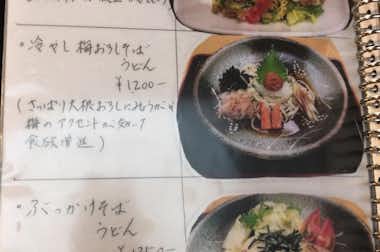 ・冷やし梅おろしそば
うどん
¥1200-
(さっぱり大根おろしにみょうがと
梅のアクセントが効いて
食欲増進)
・ぶっかけそば
うどん